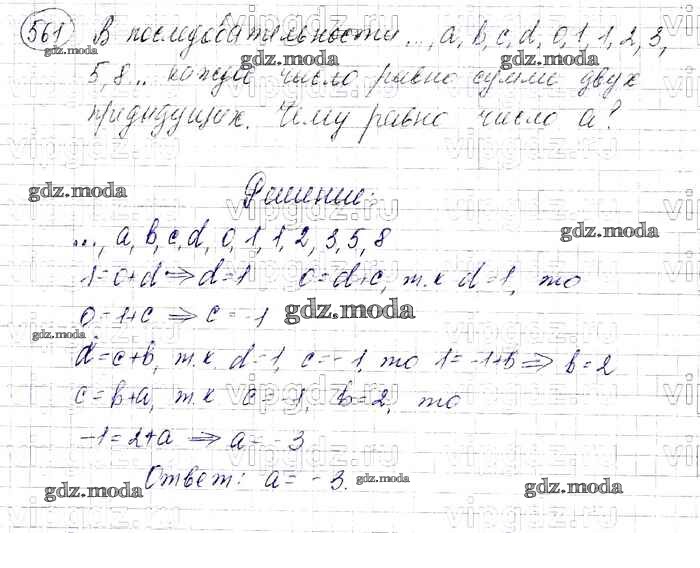 561 В последовательности ..., a, b, c, d, 0, 1, 1, 2, 3,
5, 8 .. каждое число равно сумме двух
предыдущих. Чему равно число a?
Решение:
..., a, b, c, d, 0, 1, 1, 2, 3, 5, 8
1=0+d ⇒ d=1 0=d+c, т.к d=1, то
0=1+c ⇒ c=-1
d=c+b, т.к. d=1, c=-1, то 1=-1+b ⇒ b=2
c=b+a, т.к c=-1, b=2, то
-1=2+a ⇒ a=-3
Ответ: a=-3.
gdz.moda
gdz.moda
gdz.moda
gdz.moda
gdz.moda
gdz.moda
gdz.moda
gdz.moda
gdz.moda
gdz.moda
gdz.moda
vipgdz.ru
vipgdz.ru
vipgdz.ru
vipgdz.ru
vipgdz.ru
vipgdz.ru